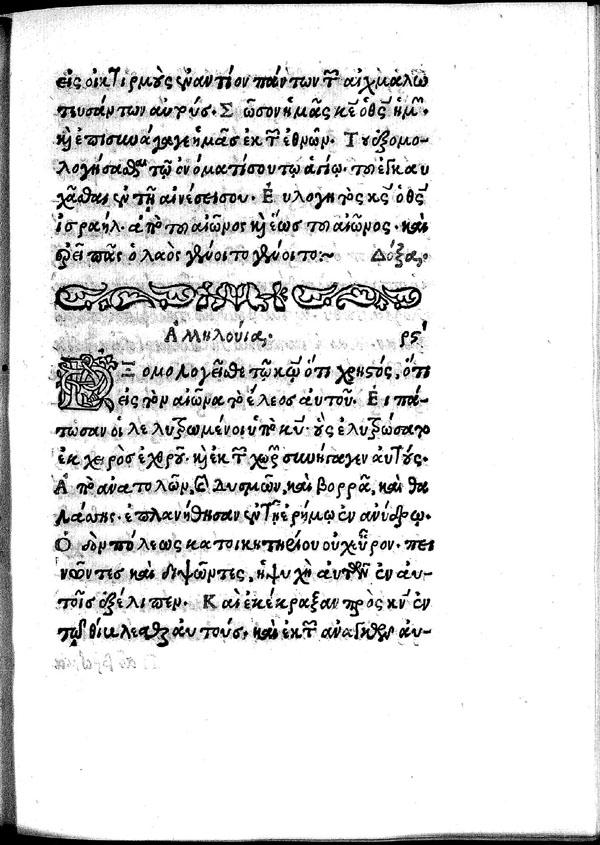 εἰς οἰκτιρμοὺς ἐναντίον πάντων τῶν αἰχμαλω
τευσάντων αὐτούς. Σῶσον ἡμᾶς κε ὁ θς ἡμῶν
καὶ ἐπισυνάγαγε ἡμᾶς ἐκ τῶν ἐθνῶν. Τοῦ ἐξομο-
λογήσασθαι τῷ ὀνόματί σου τῷ ἁγίῳ. τοῦ ἐγκαυ
χᾶσθαι ἐν τῇ αἰνέσει σου. Εὐλογητὸς κς ὁ θς
ἰσραήλ. ἀπὸ τοῦ αἰῶνος καὶ ἕως τοῦ αἰῶνος. καὶ
ἐρεῖ πᾶς ὁ λαὸς γένοιτο γένοιτο~ Δόξα,.
Ἀλληλούια,. ρς'
ΕΞομολογεῖσθε τῷ κῳ ὅτι χρηστός, ὅτι
εἰς τὸν αἰῶνα τὸ ἔλεος αὐτοῦ. Εἰπά-
τωσαν οἱ λελυτρωμένοι ὑπὸ κυ. οὓς ἐλυτρώσατο
ἐκ χειρὸς ἐχθροῦ. καὶ ἐκ τῶν χωρῶν συνήγαγεν αὐτούς.
Ἀπὸ ἀνατολῶν, καὶ Δυσμῶν, καὶ βορρᾶ, καὶ θα
λάσσης. ἐπλανήθησαν ἐν τῇ ἐρήμῳ ἐν ἀνύδρῳ.
Ὁδὸν πόλεως κατοικητηρίου οὐχ εὗρον. πει
νῶντες καὶ διψῶντες, ἡ ψυχὴ αὐτῶν ἐν αὐ-
τοῖς ἐξέλιπεν. Καὶ ἐκέκραξαν πρὸς κν ἐν
τῷ θλίβεσθαι αὐτούς. καὶ ἐκ τῶν ἀναγκῶν αὐ-